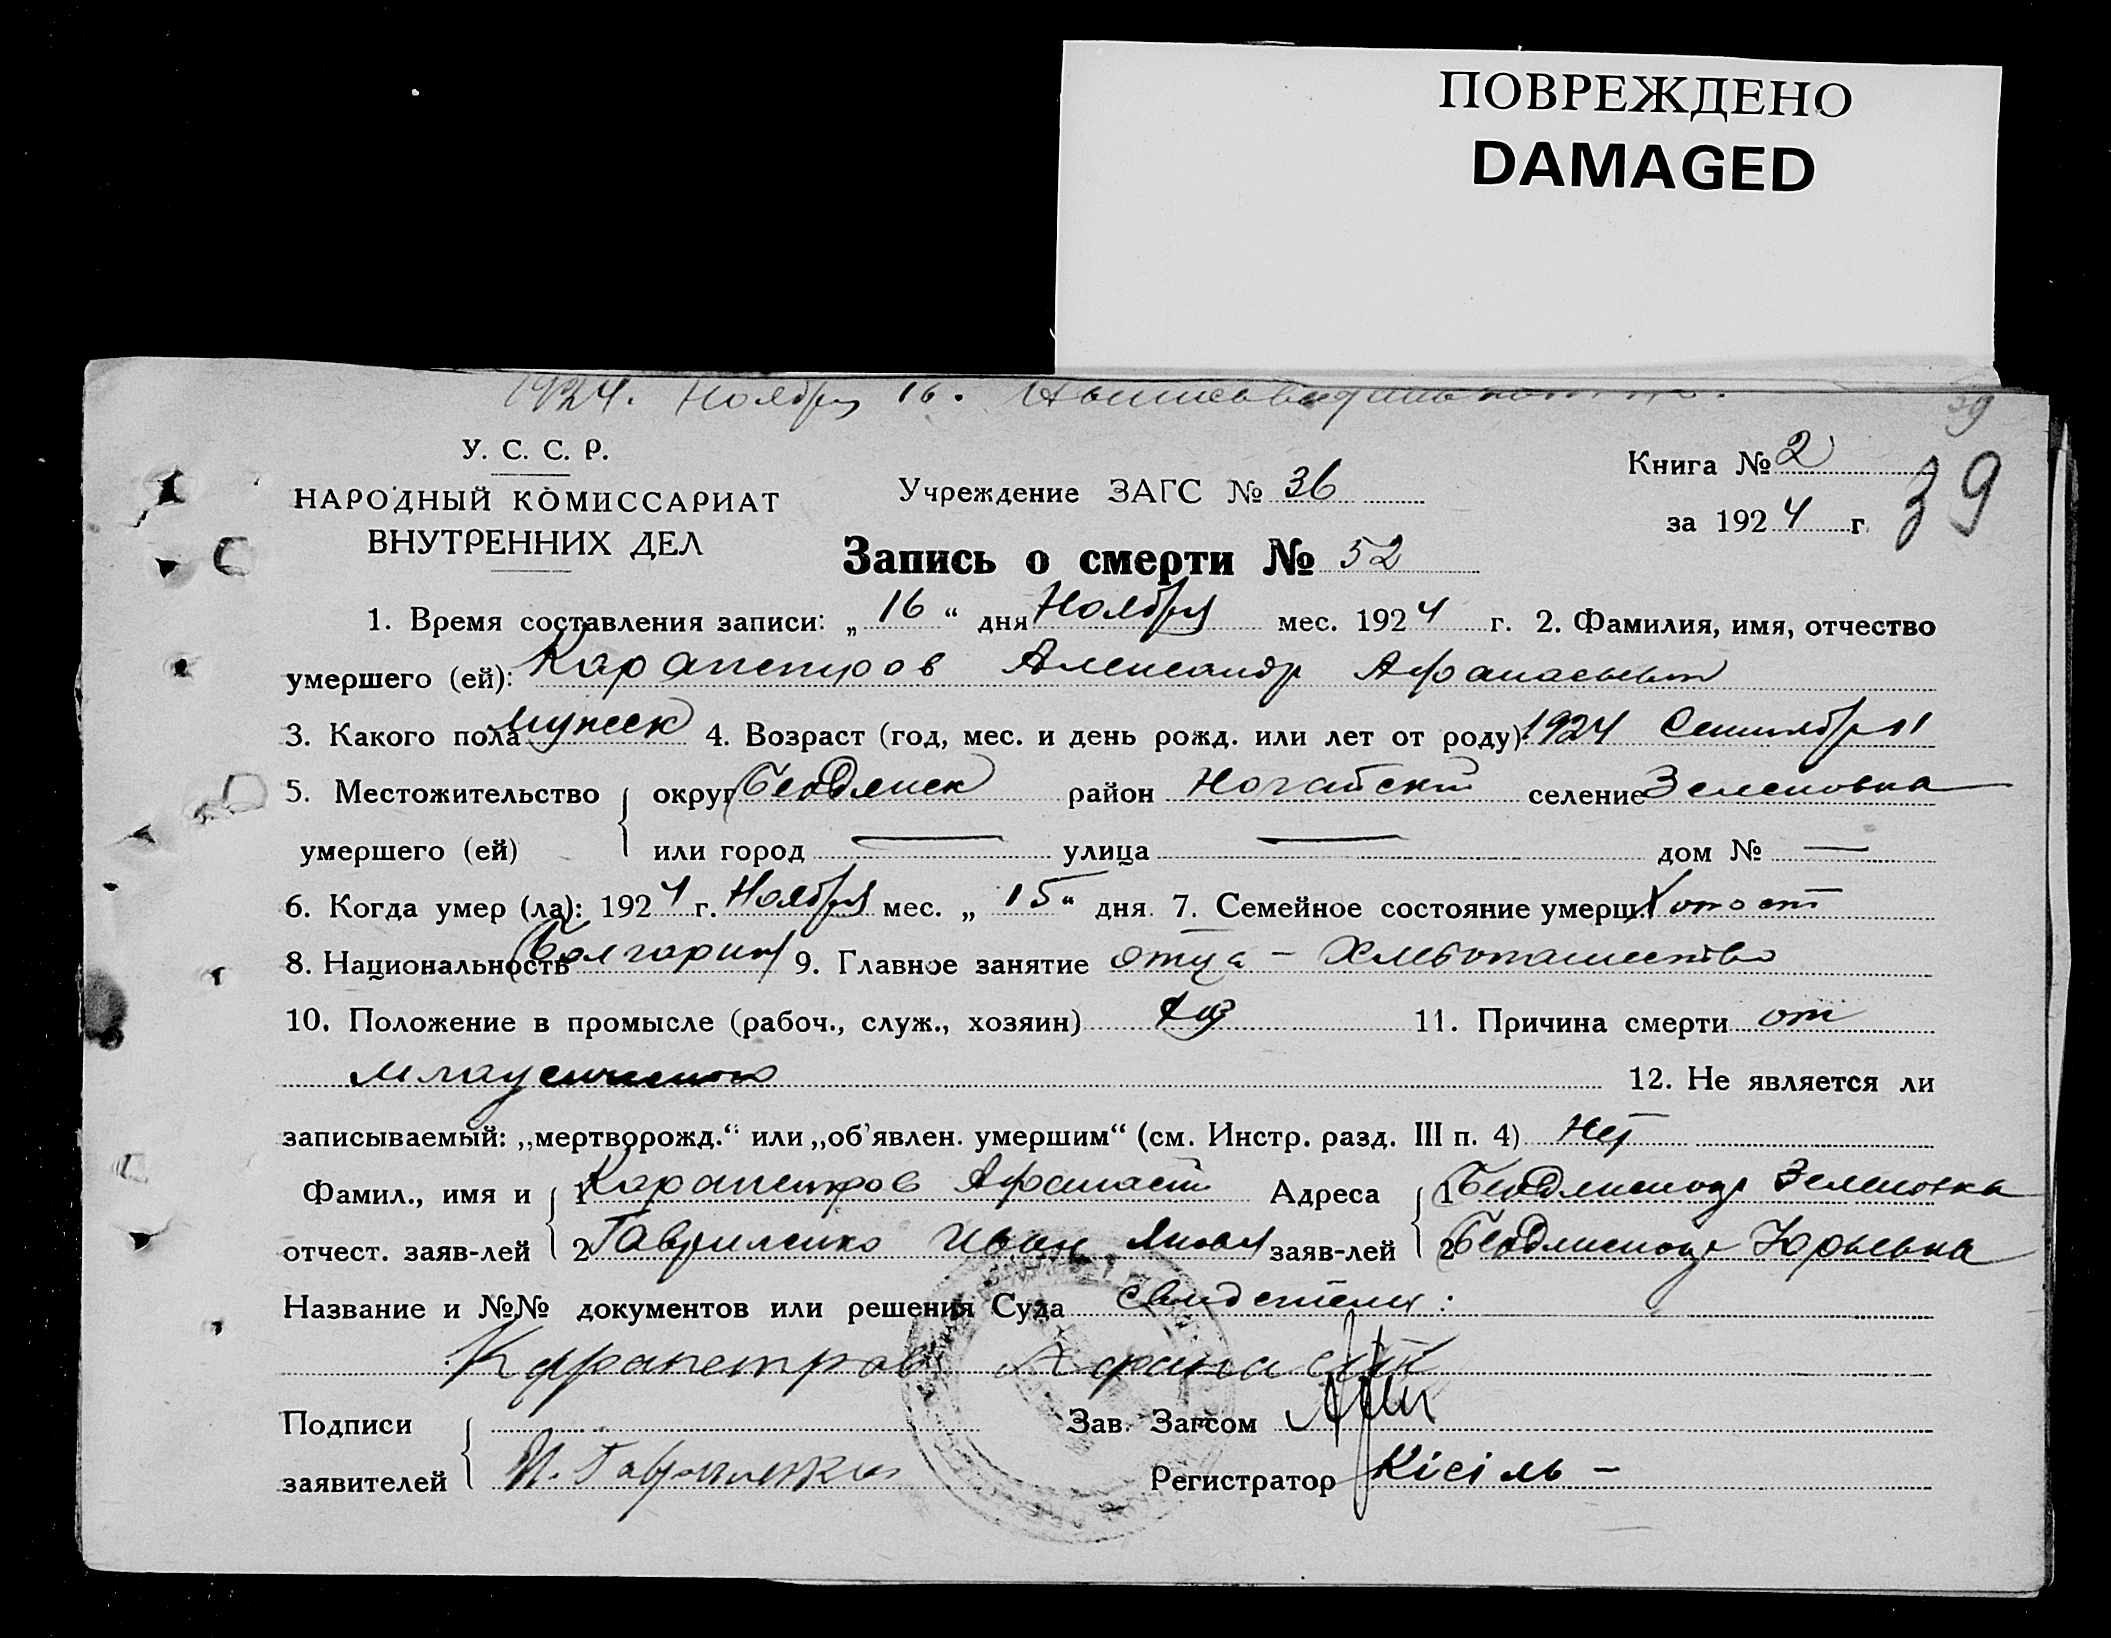 ПОВРЕЖДЕНО
DAMAGED
1924. Ноября 16.
39
У. С. С. Р.
НАРОДНЫЙ КОМИССАРИАТ
ВНУТРЕННИХ ДЕЛ
Учреждение ЗАГС № 36
Книга № 2
за 1924 г.
39
Запись о смерти № 52
1. Время составления записи: „16“ дня Ноября мес. 1924 г. 2. Фамилия, имя, отчество
умершего (ей): Карапетров Александр Афанасьевич
3. Какого пола мужск 4. Возраст (год, мес. и день рожд. или лет от роду) 1924 Сентября
5. Местожительство округ Бердянск район Ногайский селение Зеленовка
умершего (ей) или город — улица — дом № —
6. Когда умер (ла): 1924 г. Ноября мес. „15“ дня. 7. Семейное состояние умерш. Холост
8. Национальность Болгарин 9. Главное занятие отца - Хлебопашество
10. Положение в промысле (рабоч., служ., хозяин) хоз 11. Причина смерти от
младенческого 12. Не является ли
записываемый: „мертворожд.“ или „об'явлен. умершим“ (см. Инстр. разд. III п. 4) Нет
Фамил., имя и 1 Карапетров Афанасий Адреса 1 Зеленовка
отчест. заяв-лей 2 Гавриленко Иван Яковл заяв-лей 2 Юрьевка
Название и №№ документов или решения Суда Свидетели:
Карапетров Афанасий
Подписи Зав. Загсом
заявителей И. Гавриленко Регистратор Кісіль -